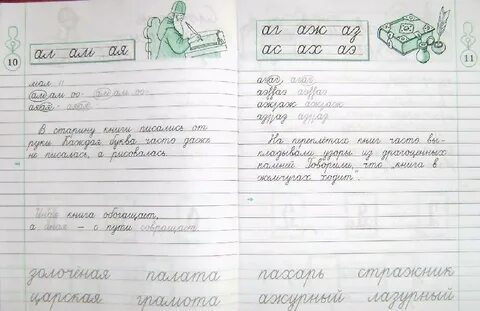 10
ал ам ая
В старину книги писались от
руки. Каждая буква часто даже
не писалась, а рисовалась.
Иная книга обогащает,
а иная – с пути совращает.
золочёная палата
царская грамота
аг аж аз
ас ах аэ
11
На переплётах книг часто вы-
кладывали узоры из драгоценных
камней. Говорили, что "книга в
жемчугах ходит".
пахарь стражник
ажурный лазурный